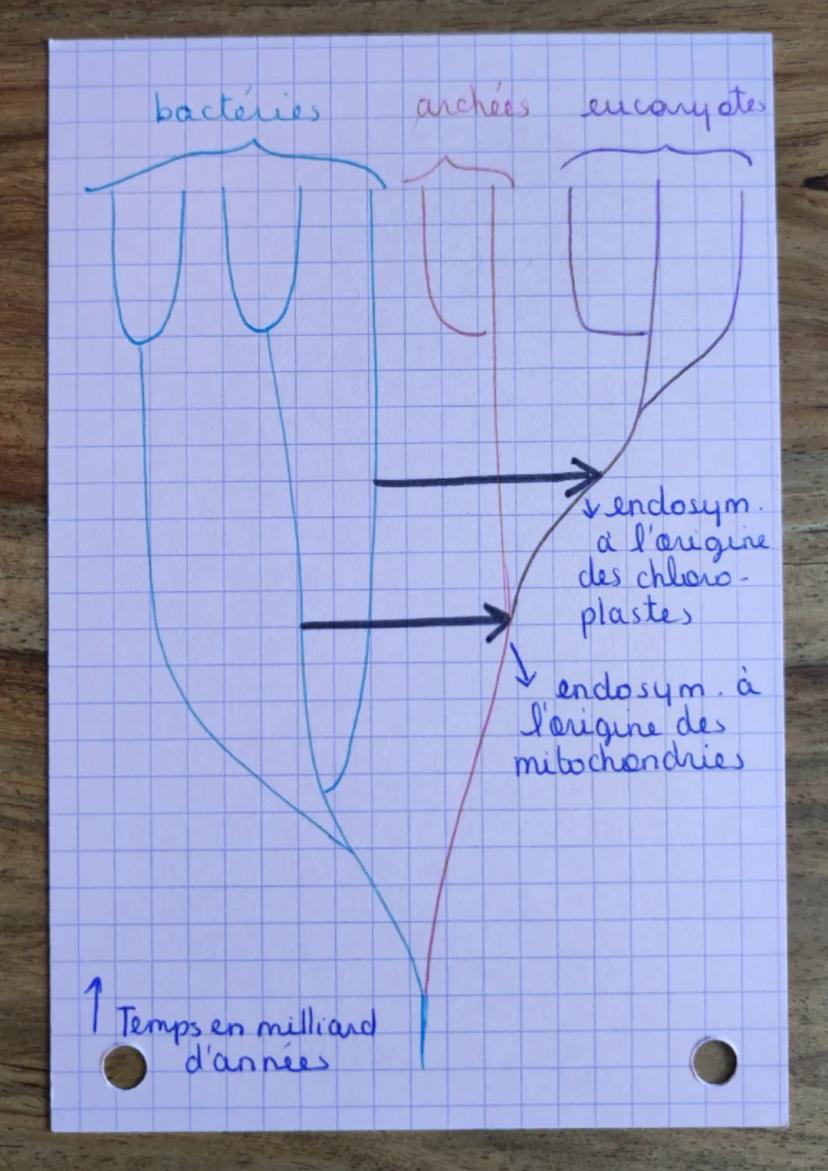 bactéries
archées
eucaryotes
endosym.
à l'origine
des chloro-
plastes
endosym. à
l'origine des
mitochondries
Temps en milliard
d'années